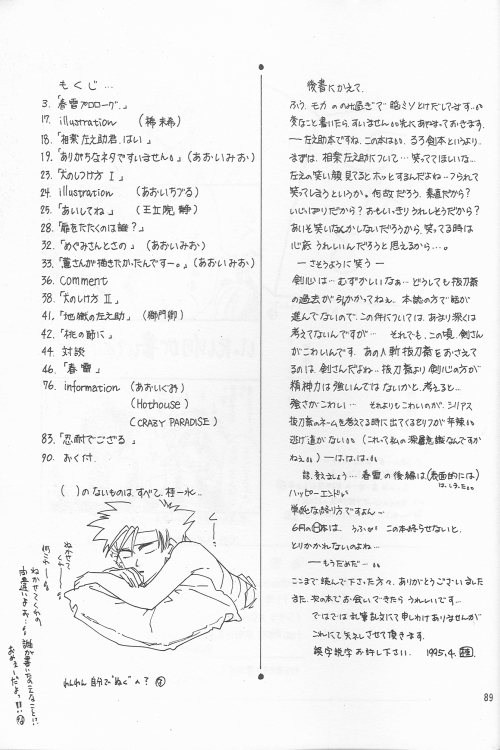 もくじ…
3. 「春雷プロローグ.」
17. illustration （柿 来希）
18. 「相楽左之助君. はい」
19. 「ありがちなネタですいません。」（あおいみお）
23. 「犬のしつけ方 I」
24. illustration （あおいうづる）
25. 「あいしてね」（王立院 静）
28. 「扉をたたくのは誰？」
32. 「めぐみさんとさの」（あおいみお）
33. 「薫さんが描きたかったんですー。」（あおいみお）
36. comment
38. 「犬のしつけ方 II」
41. 「地獄の左之助」（御門卿）
42. 「桃の節に」
44. 対談
46. 「春雷」
76. information （あおいぐみ）
（Hothouse）
（CRAZY PARADISE）
83. 「忍耐でござる」
90. おく付.
（ ）のないものは、すべて、椎一水..
ぬかせて
くーーー
ねかせてくれの
間違いよぉ…
誰が書いたのこんなこと!?
おめェーだよっ!!
わんわん 自分で"ぬぐ"へ？
後書にかえて.
ふう. モカののみ過ぎで脳ミソとけだしてます…
変なこと書いたら. すいません 先にあやまっておきます.
― 左之助本ですね、この本は。るろう剣本というより.
まずは、相楽左之助について… 笑っててほしいな…
左之の笑い顔見てるとホッとするんだよね… つられて
笑ってしまうというか。何故だろう. 素直だから？
いじっぱりだから？ おもいっきりうれしそうだから？
あいそ笑いなんかしないだろうから. 笑ってる時は
心底 うれしいんだろうと思えるから…。
― さそうように笑う ―
剣心は… むずかしいなぁ… どうしても抜刀斎
の過去がひっかかってねえ. 本誌の方で話が
進んでないので、この件については. あまり深くは
考えてないんですが… それでも、この頃. 剣さん
がこわいんです. あの人斬抜刀斎をおさえて
るのは. 剣さんだよね… 抜刀斎より剣心の方が
精神力は強いんではないかと. 考えると…
強さがこわい… それよりもこわいのが. シリアス
抜刀斎のネームを考えてる時に出てくるセリフが
逃げ道がない （これって私の深層意識なんですか
ねぇ） ― は.は.は.
話. 変えましょう… 春雷の後編は、（表面的には）
は. しました
ハッピーエンド
単純な終り方ですよん〜
6月の本は. うふふ この本終らせないと.
とりかかれないのよね…
― もうだめだ ―
ここまで読んで下さった方々. ありがとうございました
また、次の本でお会いできたら うれしいです…
ではでは 乱筆乱文にて申しわけありませんが
これにて失礼させて頂きます.
誤字脱字お許し下さい. 1995. 4.
89